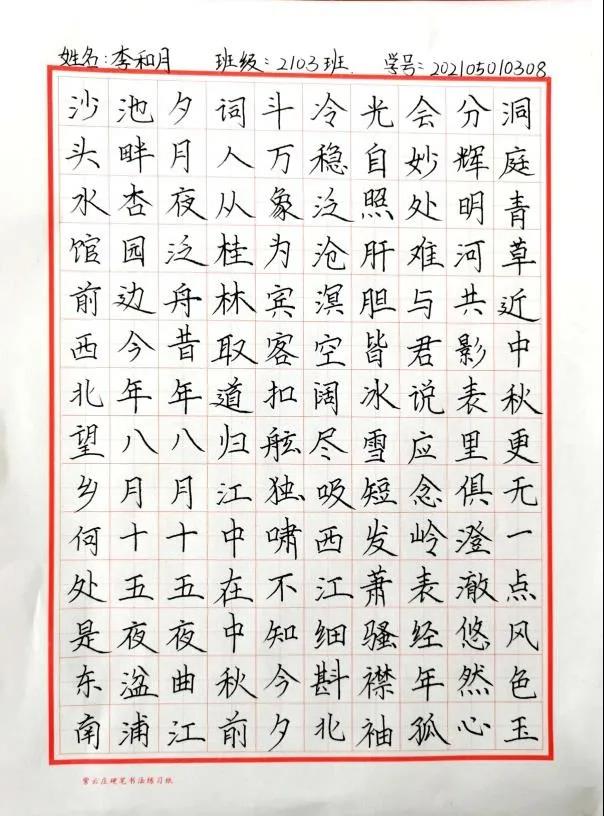 姓名:李和月 班级:2103班. 学号:202105010308
洞庭青草近中秋更无一点风色玉
分辉明河共影表里俱澄澈悠然心
会妙处难与君说应念岭表经年孤
光自照肝胆皆冰雪短发萧骚襟袖
冷稳泛沧溟空阔尽吸西江细斟北
斗万象为宾客扣舷独啸不知今夕
词人从桂林取道归江中在中秋前
夕月夜泛舟昔年八月十五夜曲江
池畔杏园边今年八月十五夜湓浦
沙头水馆前西北望乡何处是东南
紫云庄硬笔书法练习纸